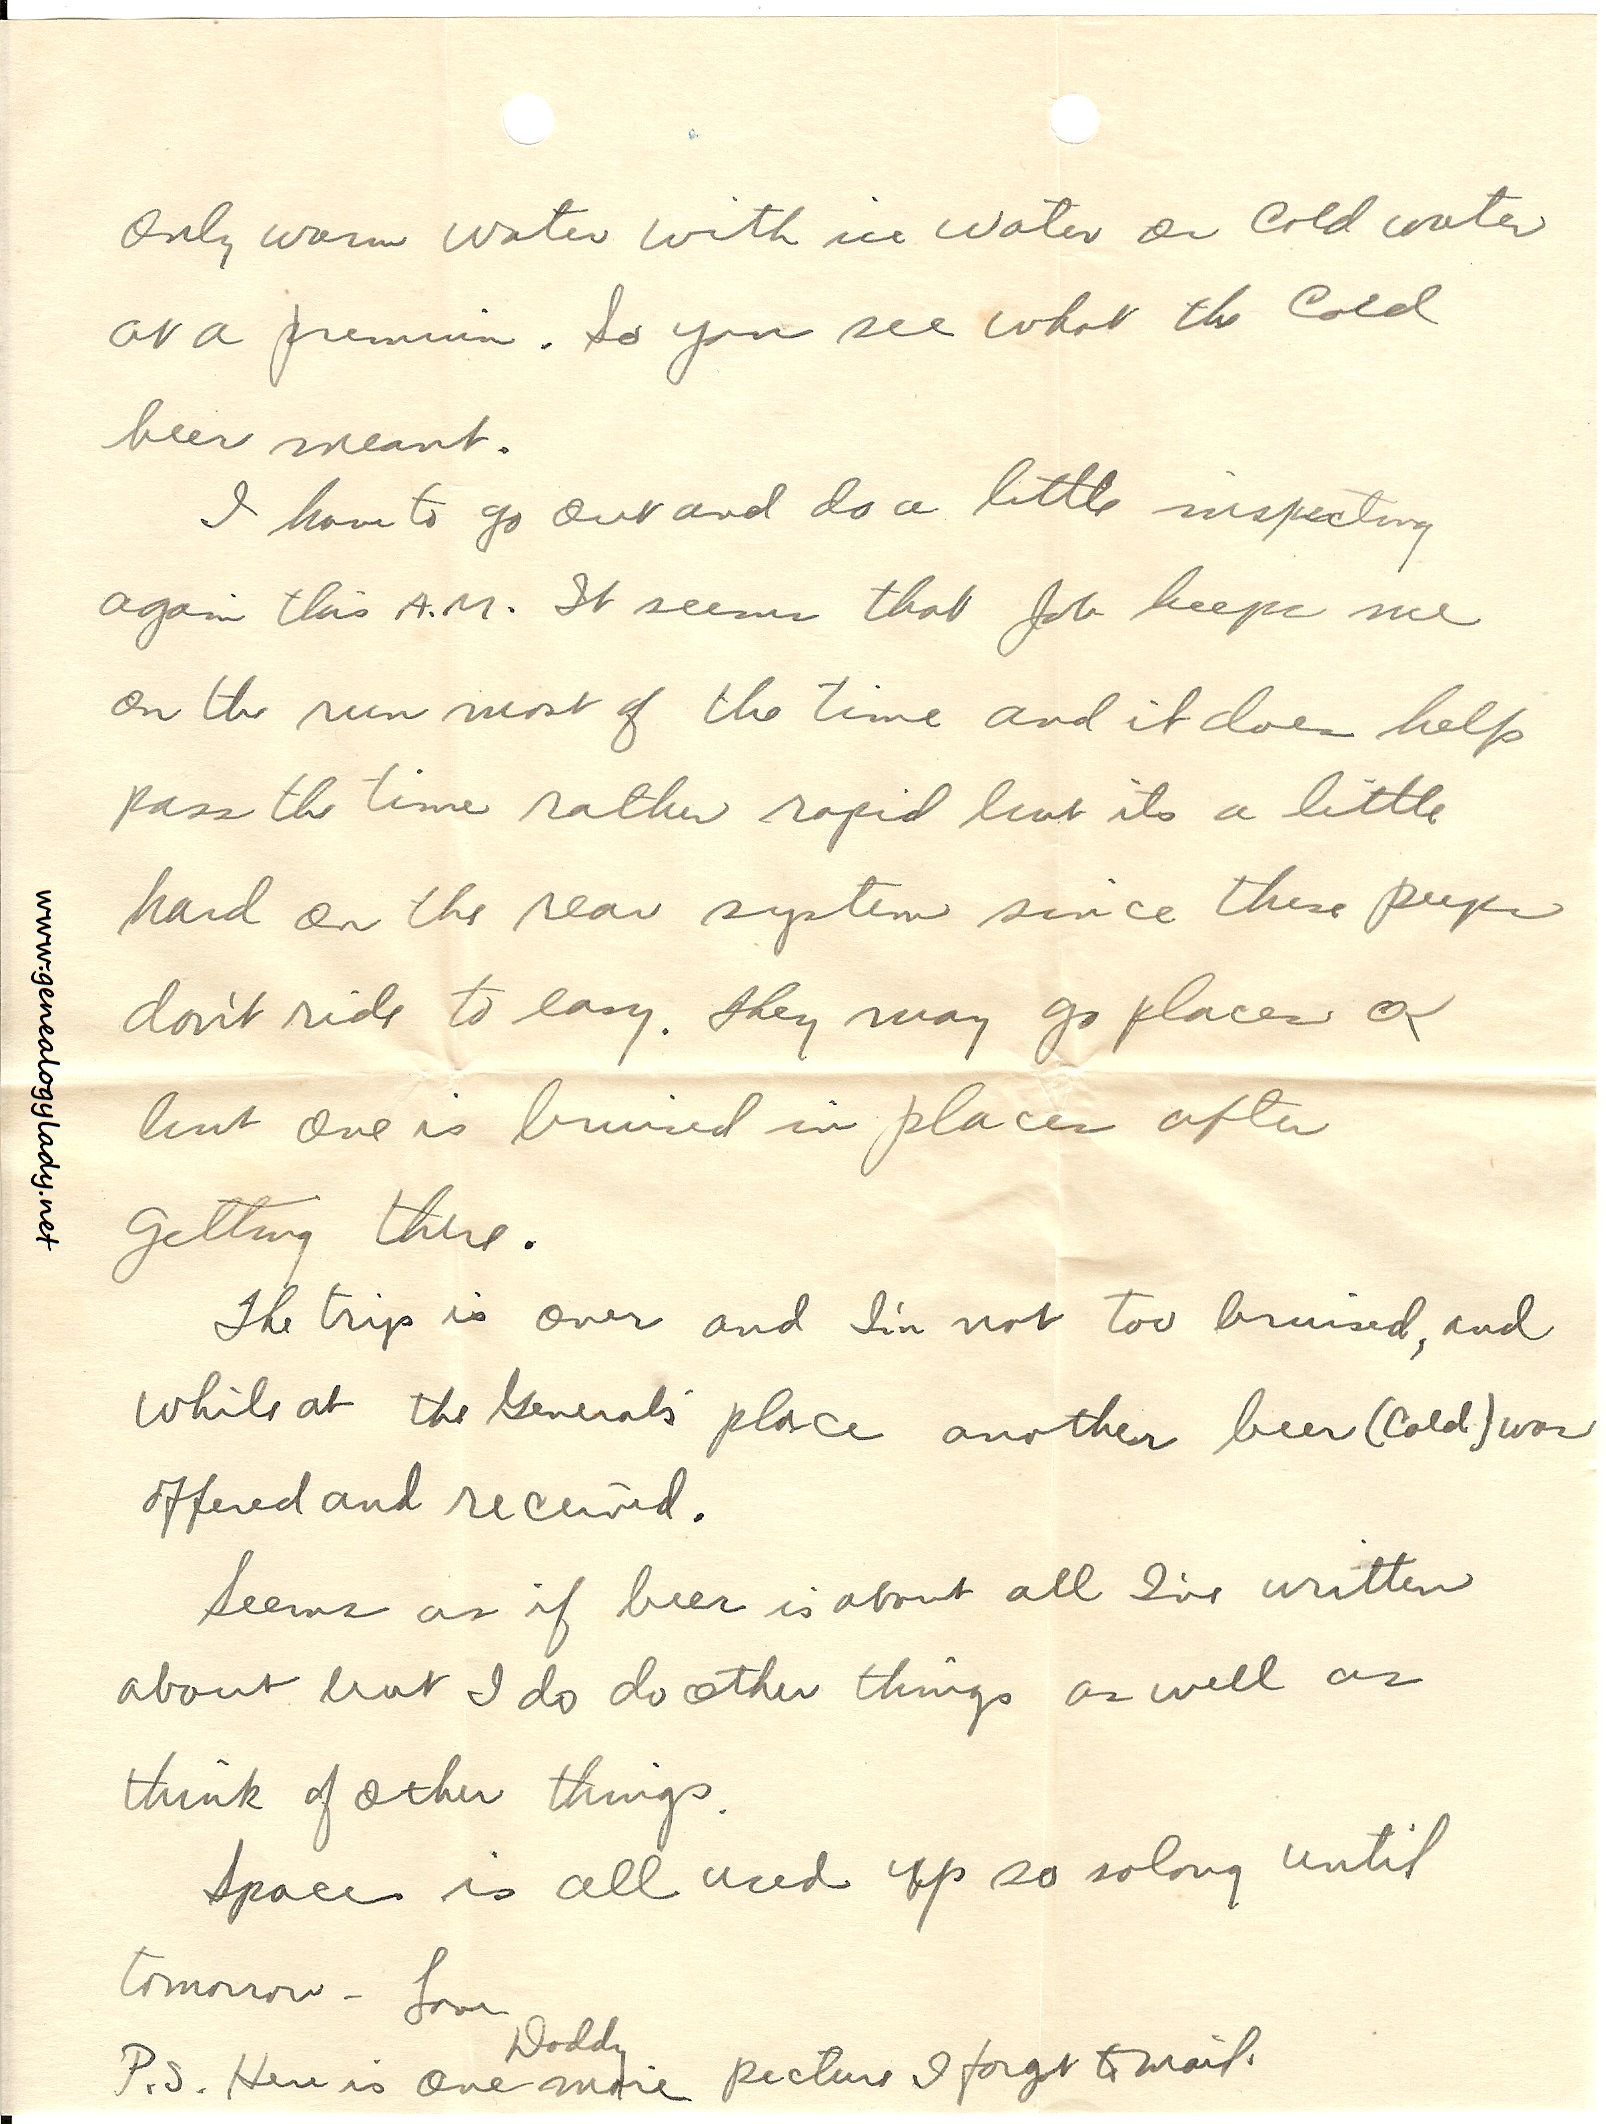 only warm water with ice water or cold water
at a premium. So you see what the cold
beer meant.
I have to go out and do a little inspecting
again this A.M. It seems that Job keeps me
on the run most of the time and it does help
pass the time rather rapid but its a little
hard on the rear system since these peeps
don't ride to easy. They may go places
but one is bruised in places after
getting there.
The trip is over and I'm not too bruised, and
while at the General's place another beer (cold) was
offered and received.
Seems as if beer is about all I've written
about but I do do other things as well as
think of other things.
Space is all used up so solong until
tomorrow - Love
Daddy
P.S. Here is one more picture I forgot to mail.
www.genealogylady.net